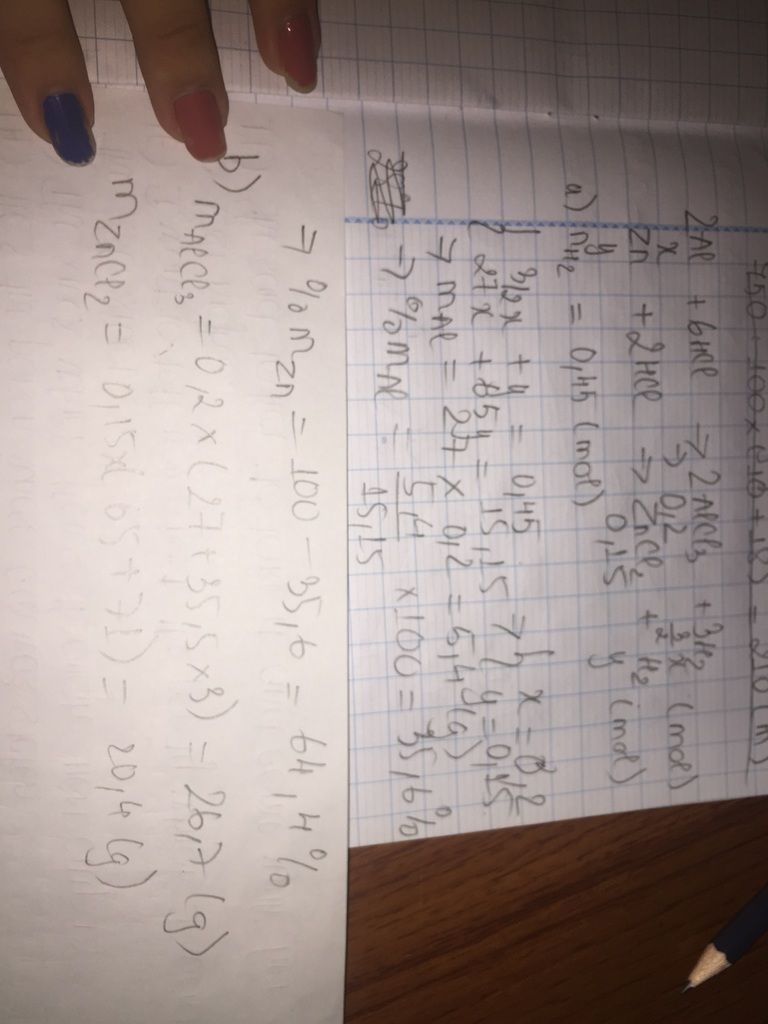 750 + 100 x (
2Al + 6HCl → 2AlCl3 + 3H2
x 0,2 3/2x (mol)
Zn + 2HCl → ZnCl2 + H2
y 0,15 y (mol)
a) nH2 = 0,45 (mol)
{ 3/2x + y = 0,45
27x + 65y = 15,15 → { x = 0,2
y = 0,15
→ mAl = 27 x 0,2 = 5,4 (g)
→ %mAl = 5,4/15,15 x 100 = 35,6%
→ %mZn = 100 - 35,6 = 64,4%
b)
mAlCl3 = 0,2 x (27 + 35,5 x 3) = 26,7 (g)
mZnCl2 = 0,15 x (65 + 71) = 20,4 (g)